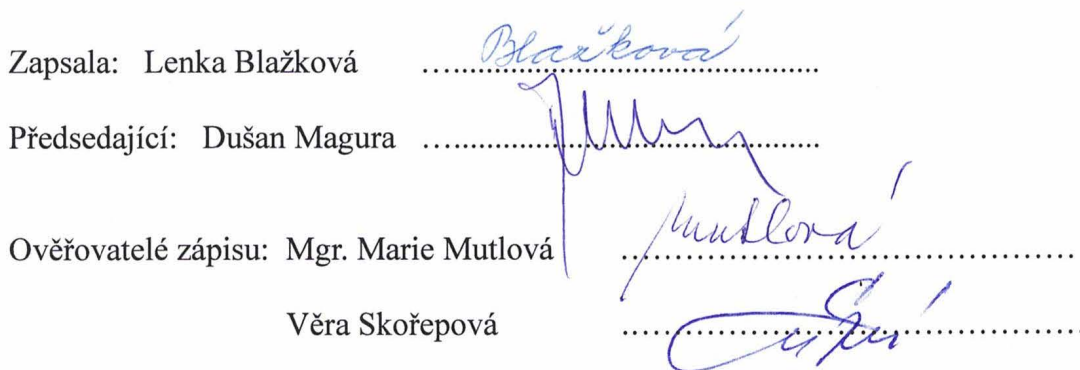 Zapsala: Lenka Blažková ........................ Blažková
Předsedající: Dušan Magura ........................
Ověřovatelé zápisu: Mgr. Marie Mutlová ........................ Mutlová
Věra Skořepová ........................